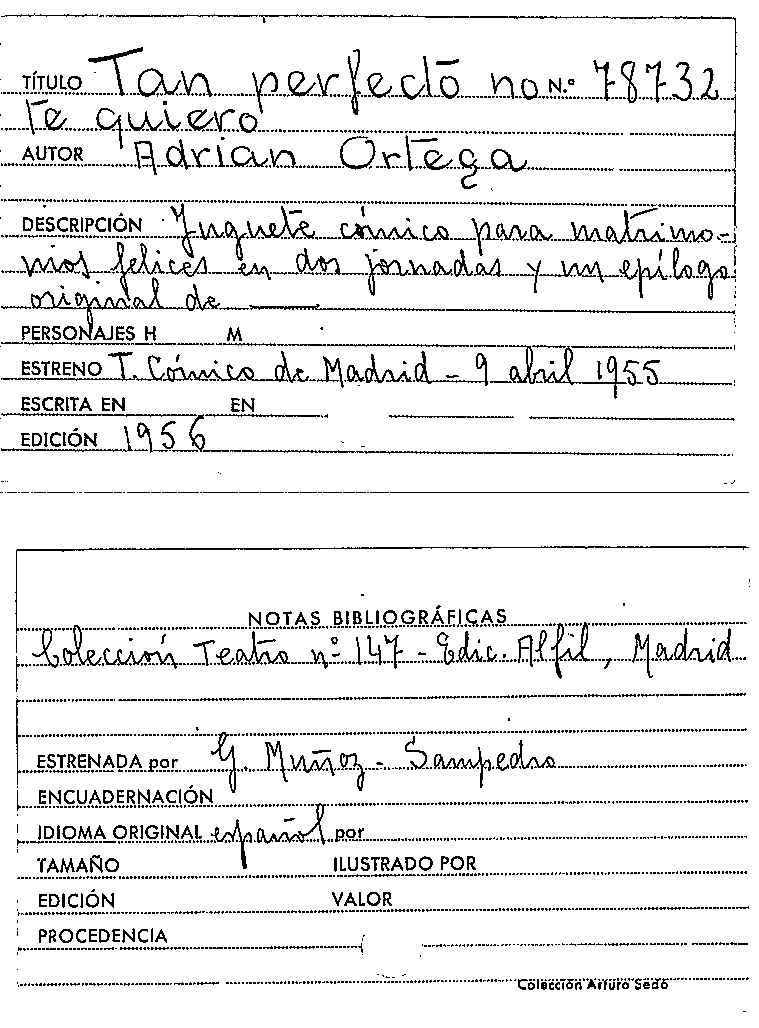 TÍTULO Tan perfecto no N.º 78732
te quiero
AUTOR Adrian Ortega
DESCRIPCIÓN Juguete cómico para matrimo-
nios felices en dos jornadas y un epílogo
original de ——
PERSONAJES H M
ESTRENO T. Cómico de Madrid - 9 abril 1955
ESCRITA EN EN
EDICIÓN 1956
NOTAS BIBLIOGRÁFICAS
Colección Teatro nº 147 - Edic. Alfil, Madrid
ESTRENADA por G. Muñoz - Sampedro
ENCUADERNACIÓN
IDIOMA ORIGINAL español por
TAMAÑO ILUSTRADO POR
EDICIÓN VALOR
PROCEDENCIA
Colección Arturo Sedó